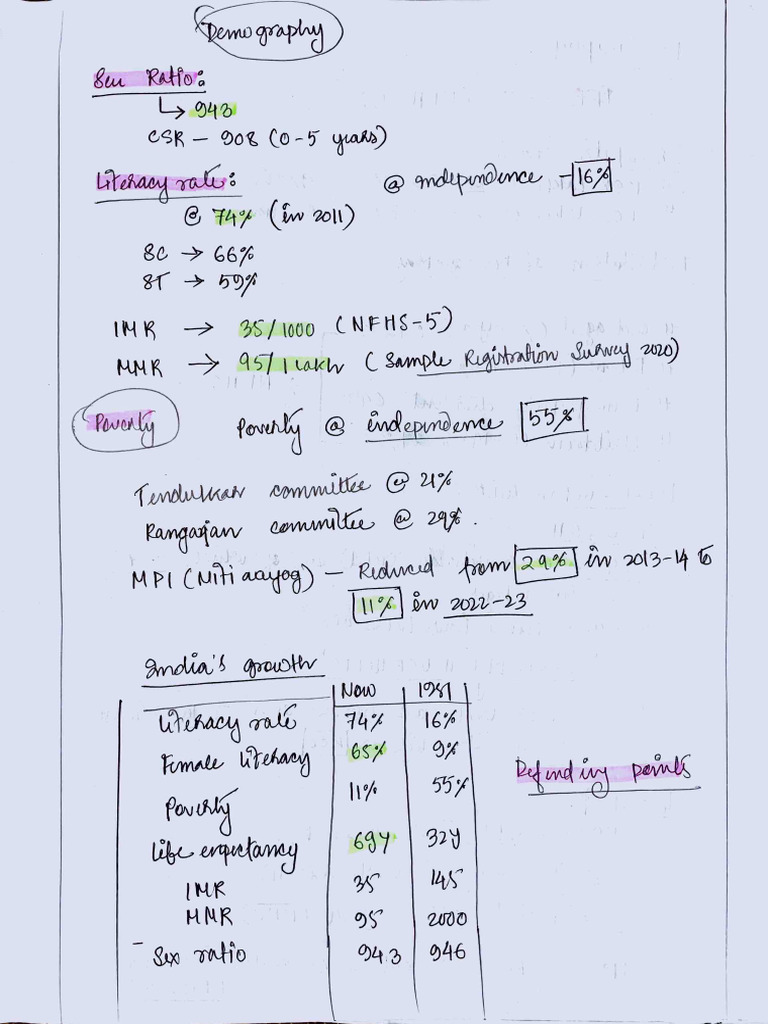 Demography
Sex Ratio:
↳ 943
CSR – 908 (0-5 years)
Literacy rate: @ independence – 16%
@ 74% (in 2011)
SC → 66%
ST → 59%
IMR → 35/1000 (NFHS-5)
MMR → 95/1 lakh (Sample Registration Survey 2020)
Poverty Poverty @ independence 55%
Tendulkar committee @ 21%
Rangarjan committee @ 29%.
MPI (Niti aayog) – Reduced from 29% in 2013-14 to
11% in 2022-23
India's growth
Now 1951
Literacy rate 74% 16%
Female literacy 65% 9%
Poverty 11% 55%
Life expectancy 69y 32y
Defending points
IMR 35 145
MMR 95 2000
– Sex ratio 943 946